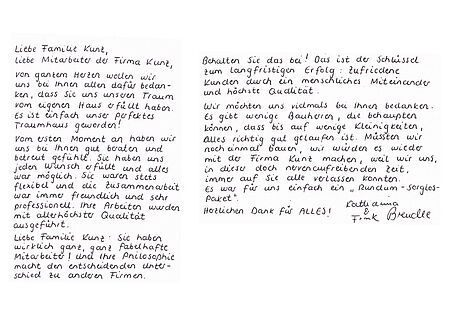 Liebe Familie Kunz,
Liebe Mitarbeiter der Firma Kunz,
von ganzem Herzen wollen wir
uns bei Ihnen allen dafür bedan-
ken, dass Sie uns unseren Traum
vom eigenen Haus erfüllt haben.
Es ist einfach unser perfektes
Traumhaus geworden!
Vom ersten Moment an haben wir
uns bei Ihnen gut beraten und
betreut gefühlt. Sie haben uns
jeden Wunsch erfüllt und alles
war möglich. Sie waren stets
flexibel und die Zusammenarbeit
war immer freundlich und sehr
professionell. Ihre Arbeiten wurden
mit allerhöchster Qualität
ausgeführt.
Liebe Familie Kunz. Sie haben
wirklich ganz, ganz fabelhafte
Mitarbeiter! und Ihre Philosophie
macht den entscheidenden Unter-
schied zu anderen Firmen.
Behalten Sie das bei! Das ist der Schlüssel
zum langfristigen Erfolg: zufriedene
Kunden durch ein menschliches Miteinander
und höchste Qualität.
Wir möchten uns vielmals bei Ihnen bedanken.
Es gibt wenige Bauherren, die behaupten
können, dass bis auf wenige Kleinigkeiten,
Alles richtig gut gelaufen ist. Müssten wir
noch einmal bauen, wir würden es wieder
mit der Firma Kunz machen, weil wir uns,
in dieser doch nervenaufreibenden Zeit,
immer auf Sie alle verlassen konnten.
Es war für uns einfach ein „Rundum-sorglos-
Paket".
Herzlichen Dank für ALLES!
Katharina
&